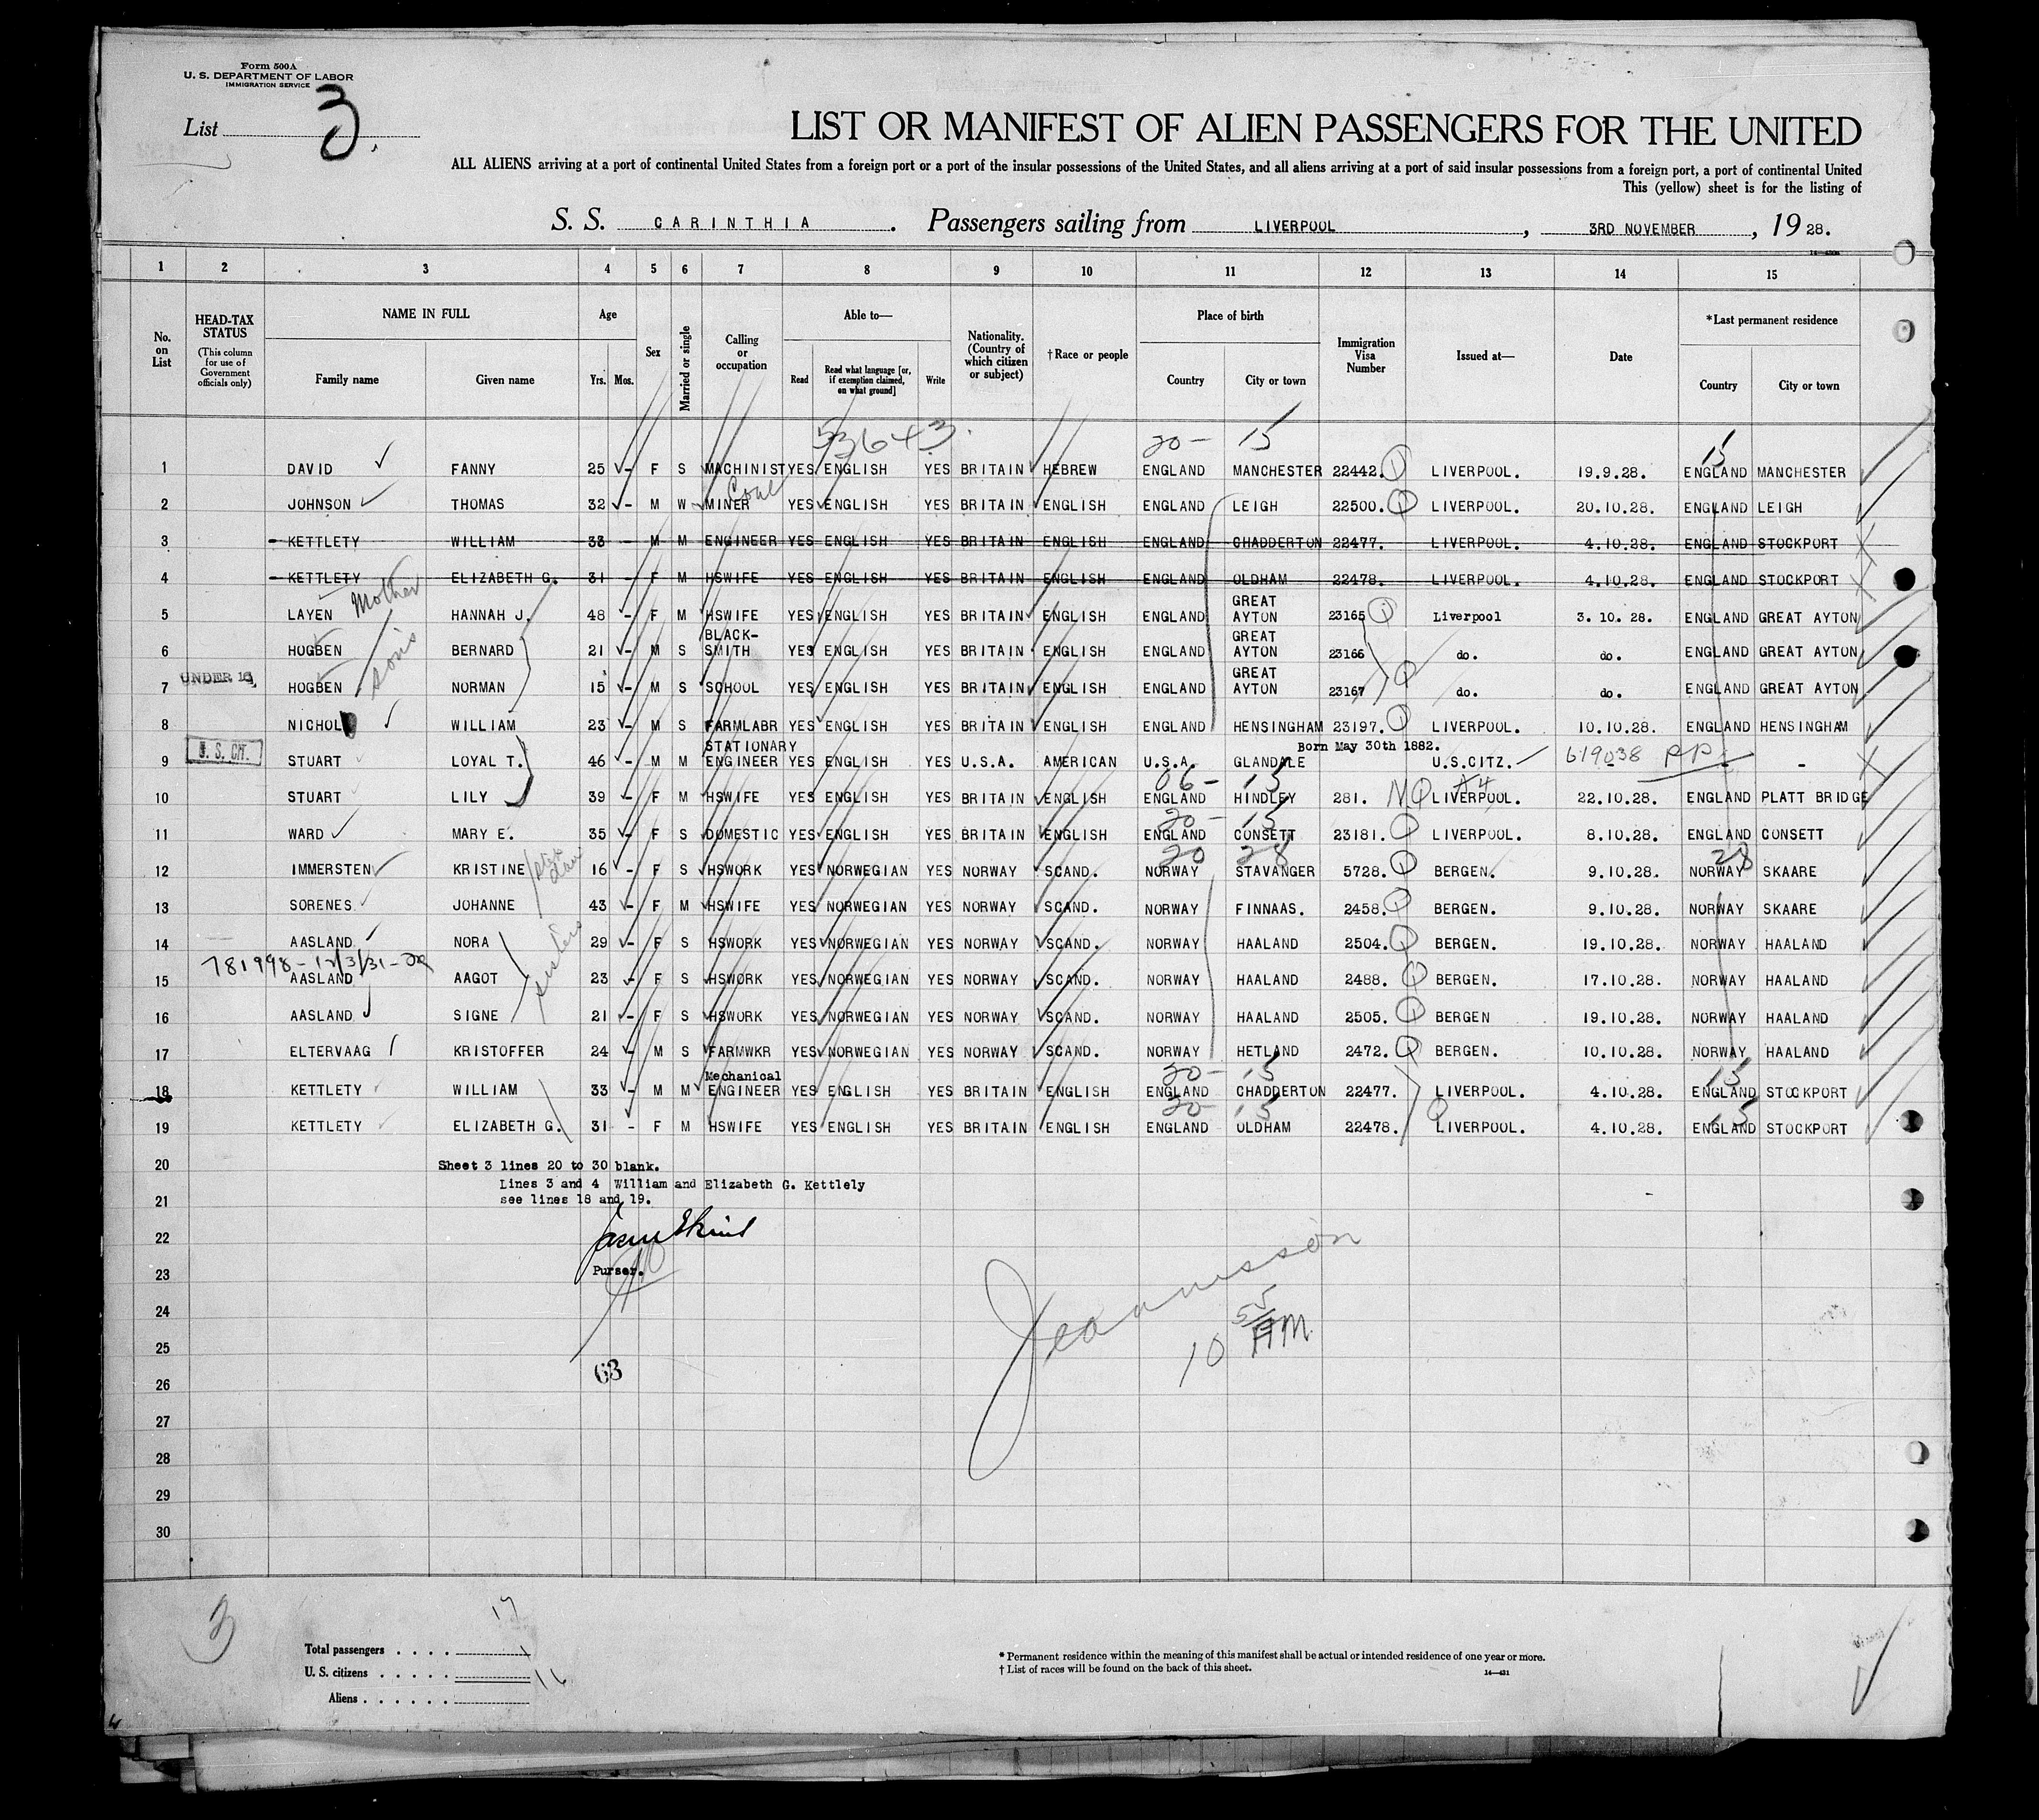 Form 500A
U. S. DEPARTMENT OF LABOR
IMMIGRATION SERVICE
List 3.
LIST OR MANIFEST OF ALIEN PASSENGERS FOR THE UNITED
ALL ALIENS arriving at a port of continental United States from a foreign port or a port of the insular possessions of the United States, and all aliens arriving at a port of said insular possessions from a foreign port, a port of continental United
This (yellow) sheet is for the listing of
S. S. CARINTHIA. Passengers sailing from LIVERPOOL, 3RD NOVEMBER, 19 28.
1 2 3 4 5 6 7 8 9 10 11 12 13 14 15
No. on List
HEAD-TAX STATUS
(This column for use of Government officials only)
NAME IN FULL
Family name
Given name
Age
Yrs. Mos.
Sex
Married or single
Calling or occupation
Able to—
Read
Read what language [or, if exemption claimed, on what ground]
Write
Nationality. (Country of which citizen or subject)
†Race or people
Place of birth
Country
City or town
Immigration Visa Number
Issued at—
Date
*Last permanent residence
Country
City or town
53643. 20- 15 15
1 DAVID FANNY 25 - F S MACHINIST YES ENGLISH YES BRITAIN HEBREW ENGLAND MANCHESTER 22442. LIVERPOOL. 19.9.28. ENGLAND MANCHESTER
Coal
2 JOHNSON THOMAS 32 - M W MINER YES ENGLISH YES BRITAIN ENGLISH ENGLAND LEIGH 22500. LIVERPOOL. 20.10.28. ENGLAND LEIGH
3 KETTLETY WILLIAM 33 - M M ENGINEER YES ENGLISH YES BRITAIN ENGLISH ENGLAND CHADDERTON 22477. LIVERPOOL. 4.10.28. ENGLAND STOCKPORT
4 KETTLETY ELIZABETH G. 31 - F M HSWIFE YES ENGLISH YES BRITAIN ENGLISH ENGLAND OLDHAM 22478. LIVERPOOL. 4.10.28. ENGLAND STOCKPORT
Mother
5 LAYEN HANNAH J. 48 - F M HSWIFE YES ENGLISH YES BRITAIN ENGLISH ENGLAND GREAT AYTON 23165 Liverpool 3. 10. 28. ENGLAND GREAT AYTON
6 HOGBEN BERNARD 21 - M S BLACK-SMITH YES ENGLISH YES BRITAIN ENGLISH ENGLAND GREAT AYTON 23166 do. do. ENGLAND GREAT AYTON
sons
UNDER 16
7 HOGBEN NORMAN 15 - M S SCHOOL YES ENGLISH YES BRITAIN ENGLISH ENGLAND GREAT AYTON 23167 do. do. ENGLAND GREAT AYTON
8 NICHOL WILLIAM 23 - M S FARMLABR YES ENGLISH YES BRITAIN ENGLISH ENGLAND HENSINGHAM 23197. LIVERPOOL. 10.10.28. ENGLAND HENSINGHAM
U. S. CIT. Born May 30th 1882.
9 STUART LOYAL T. 46 - M M STATIONARY ENGINEER YES ENGLISH YES U.S.A. AMERICAN U.S.A. GLANDALE U.S.CITZ. 619038 PP - -
06- 15 A4
10 STUART LILY 39 - F M HSWIFE YES ENGLISH YES BRITAIN ENGLISH ENGLAND HINDLEY 281. NQ LIVERPOOL. 22.10.28. ENGLAND PLATT BRIDGE
20- 15
11 WARD MARY E. 35 - F S DOMESTIC YES ENGLISH YES BRITAIN ENGLISH ENGLAND CONSETT 23181. LIVERPOOL. 8.10.28. ENGLAND CONSETT
20 28 28
12 IMMERSTEN KRISTINE 16 - F S HSWORK YES NORWEGIAN YES NORWAY SCAND. NORWAY STAVANGER 5728. BERGEN. 9.10.28. NORWAY SKAARE
13 SORENES JOHANNE 43 - F M HSWIFE YES NORWEGIAN YES NORWAY SCAND. NORWAY FINNAAS. 2458. BERGEN. 9.10.28. NORWAY SKAARE
14 AASLAND NORA 29 - F S HSWORK YES NORWEGIAN YES NORWAY SCAND. NORWAY HAALAND 2504. BERGEN. 19.10.28. NORWAY HAALAND
sisters
781998-12/3/31-
15 AASLAND AAGOT 23 - F S HSWORK YES NORWEGIAN YES NORWAY SCAND. NORWAY HAALAND 2488. BERGEN. 17.10.28. NORWAY HAALAND
16 AASLAND SIGNE 21 - F S HSWORK YES NORWEGIAN YES NORWAY SCAND. NORWAY HAALAND 2505. BERGEN 19.10.28. NORWAY HAALAND
17 ELTERVAAG KRISTOFFER 24 - M S FARMWKR YES NORWEGIAN YES NORWAY SCAND. NORWAY HETLAND 2472. BERGEN. 10.10.28. NORWAY HAALAND
20- 15 15
18 KETTLETY WILLIAM 33 - M M Mechanical ENGINEER YES ENGLISH YES BRITAIN ENGLISH ENGLAND CHADDERTON 22477. LIVERPOOL. 4.10.28. ENGLAND STOCKPORT
20 15 15
19 KETTLETY ELIZABETH G. 31 - F M HSWIFE YES ENGLISH YES BRITAIN ENGLISH ENGLAND OLDHAM 22478. LIVERPOOL. 4.10.28. ENGLAND STOCKPORT
20 Sheet 3 lines 20 to 30 blank.
Lines 3 and 4 William and Elizabeth G. Kettlely
21 see lines 18 and 19.
22
23 Purser.
24
25
26 63
27
28
29
30
Jeannesson
10 55 AM
3
17
Total passengers
U. S. citizens 1
Aliens 16
* Permanent residence within the meaning of this manifest shall be actual or intended residence of one year or more.
† List of races will be found on the back of this sheet.
14—421